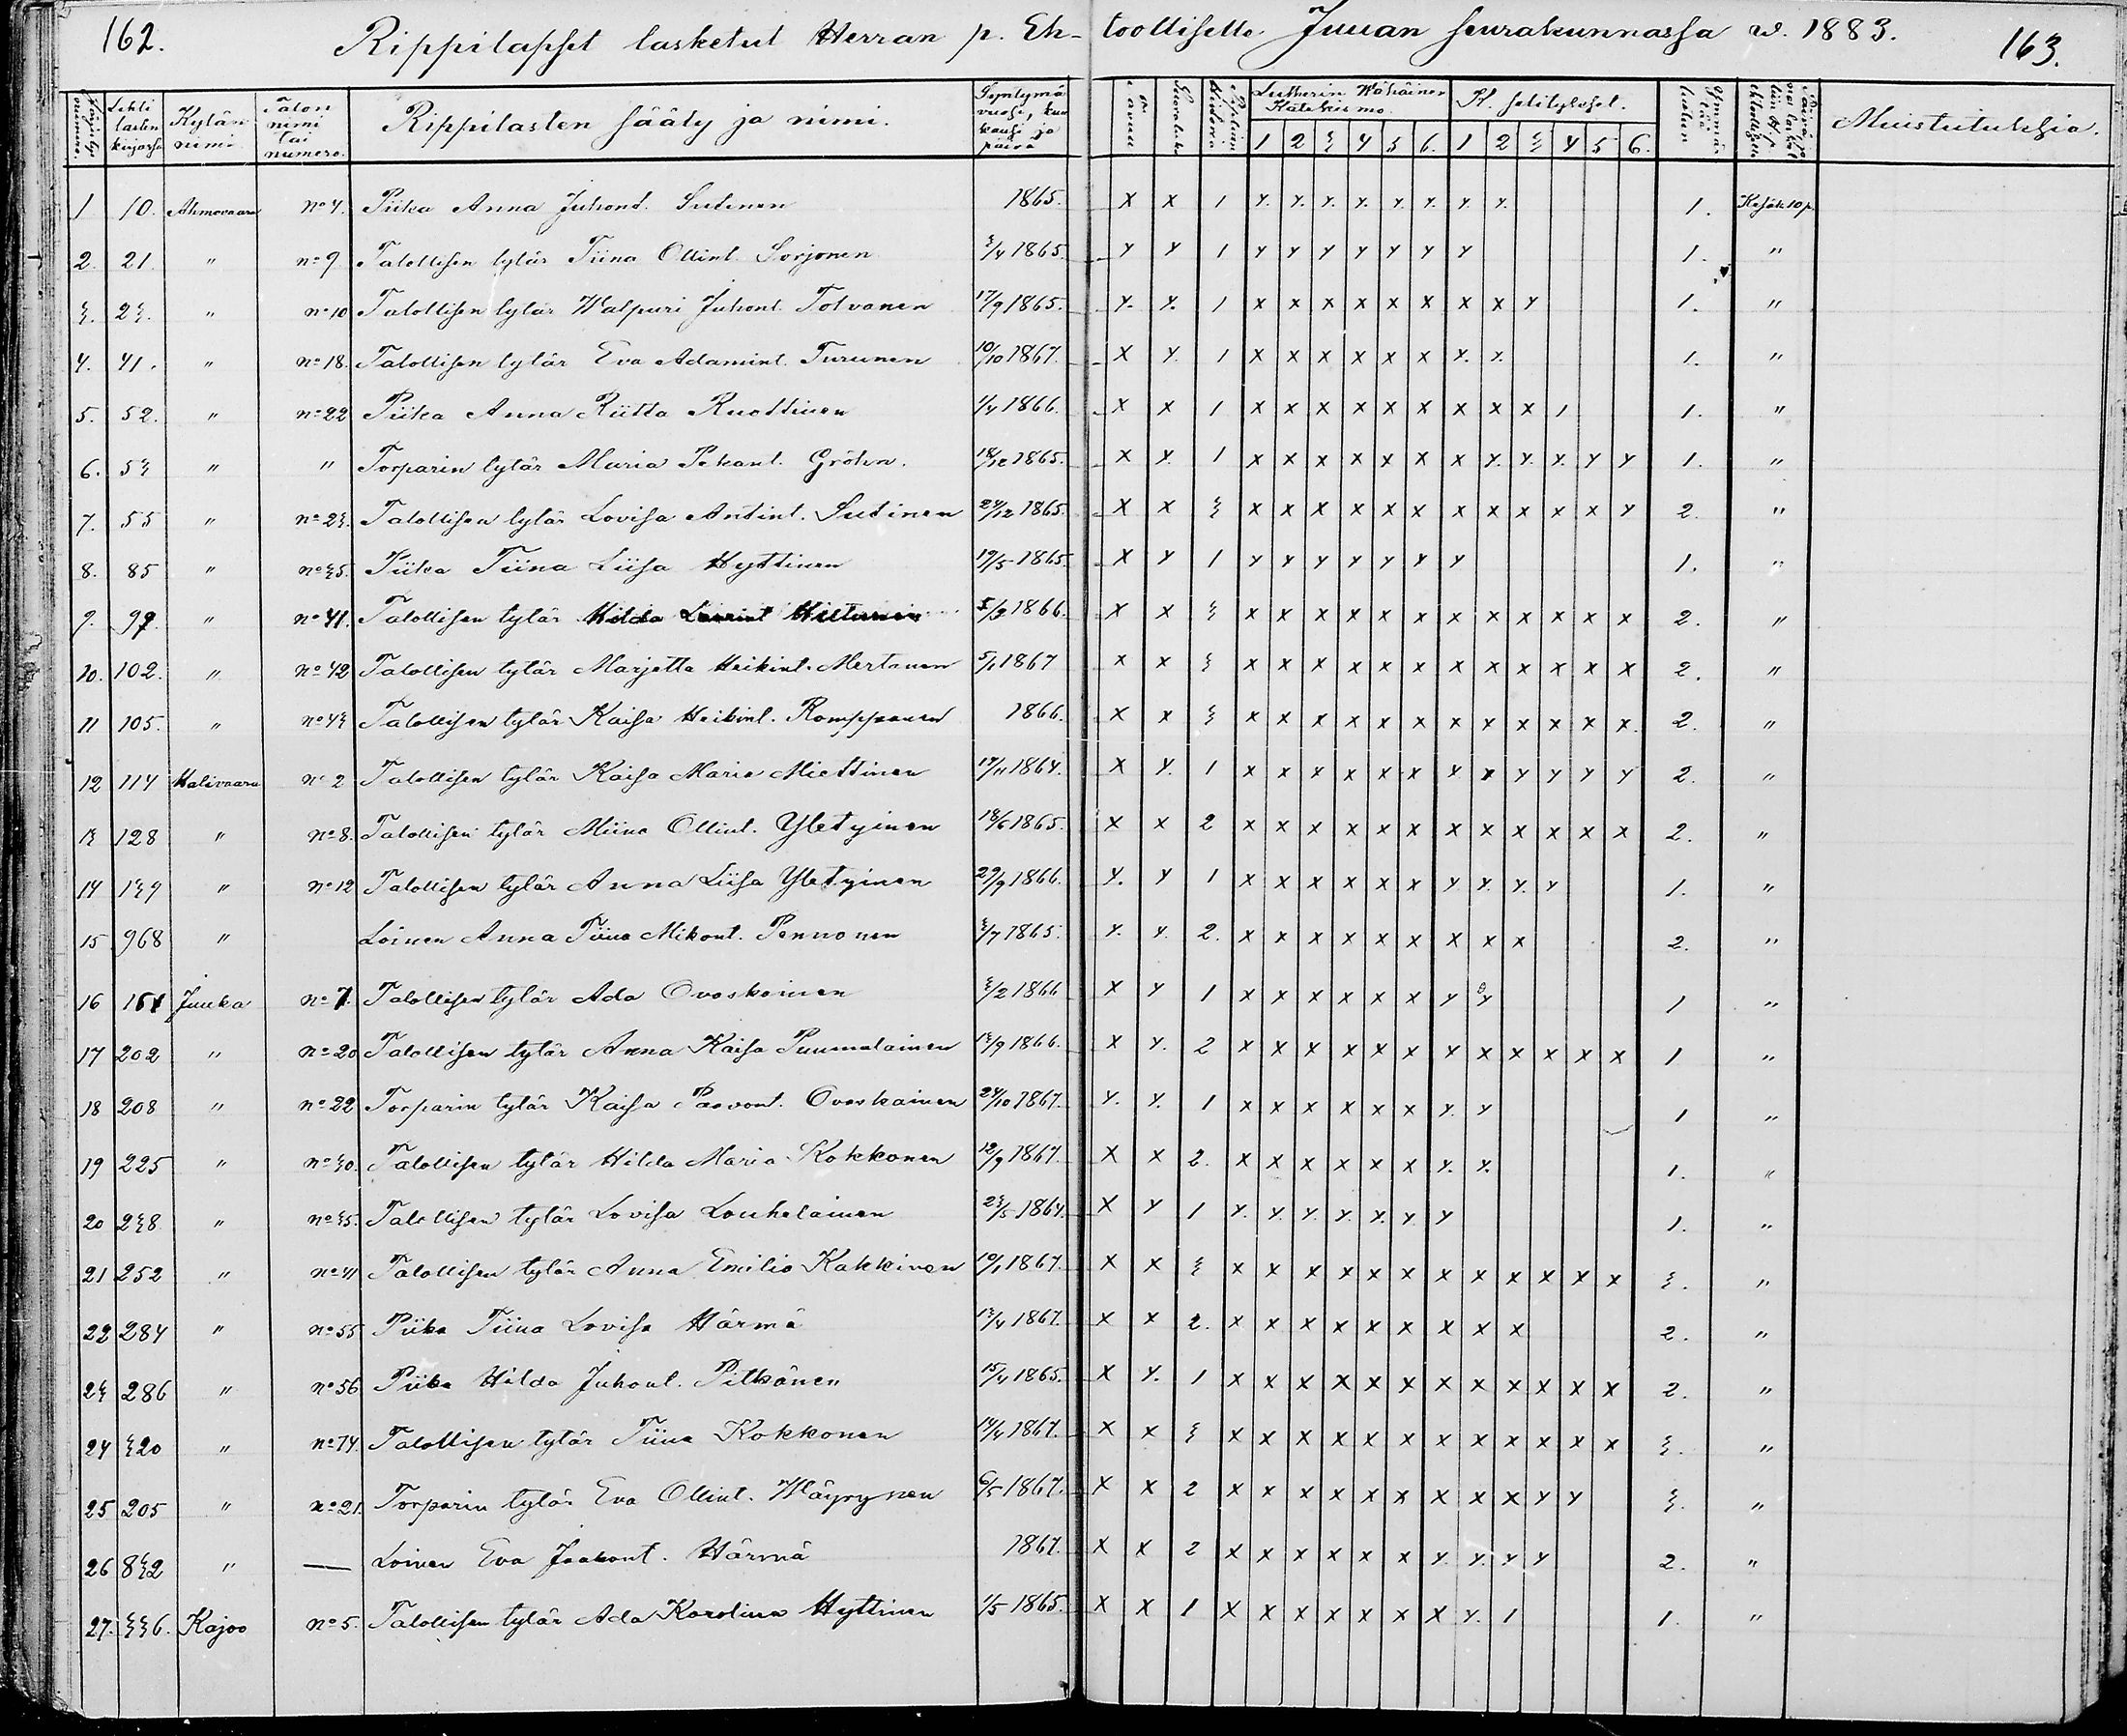 162. Rippilapset lasketut Herran p. Eh- toolliselle Juuan seurakunnassa w. 1883. 163.
Lehti lasten kirjassa Kylän nimi Talon nimi tai numero. Rippilasten sääty ja nimi. Syntymä vuosi, kuukausi ja päivä Lutherin Wähäinen Katekismo. Pl. selitykset. Muistutuksia.
1 2 3 4 5 6. 1 2 3 4 5 6.
1 10. Ahmovaara No 4. Piika Anna Juhont. Sutinen 1865. x x 1 y. y. y. y. y. y. y. y. 1. Kesäk 10 p.
2. 21. " no 9 Talollisen tytär Tiina Ollint. Sorjonen 3/4 1865. y y 1 y y y y y y y 1. "
3. 23. " no 10 Talollisen tytär Walpuri Juhont. Tolvanen 17/9 1865. y. y. 1 x x x x x x x x y 1. "
4. 41. " no 18. Talollisen tytär Eva Adamint. Turunen 10/10 1867. x y. 1 x x x x x x y. y. 1. "
5. 52. " no 22 Piika Anna Riitta Ruottinen 1/4 1866. x x 1 x x x x x x x x x 1 1. "
6. 53 " " Torparin tytär Maria Pekant. Gröhn. 18/12 1865. x y. 1 x x x x x x x y. y. y. y y 1. "
7. 55 " no 23. Talollisen tytär Lovisa Antint. Sutinen 24/12 1865. x x 3 x x x x x x x x x x x y 2. "
8. 85 " no 35. Piika Tiina Liisa Hyttinen 19/5 1865. x y 1 y y y y y y y 1. "
9. 97. " no 41. Talollisen tytär Hilda Hiltunen 1866. x x 3 x x x x x x x x x x x x 2. "
10. 102. " no 42 Talollisen tytär Marjetta Heikint. Mertanen 5/1 1867 x x 3 x x x x x x x x x x x x 2. "
11 105. " no 43 Talollisen tytär Kaisa Heikint. Romppanen 1866. x x 3 x x x x x x x x x x x x. 2. "
12 114 Halivaara no 2 Talollisen tytär Kaisa Maria Miettinen 17/11 1864. x y. 1 x x x x x x y. x y y y y 2. "
13 128 " no 8. Talollisen tytär Miina Ollint. Yletyinen 18/6 1865. x x 2 x x x x x x x x x x x x 2. "
14 139 " no 12 Talollisen tytär Anna Liisa Yletyinen 29/9 1866. y. y 1 x x x x x x y y. y. y 1. "
15 968 " Loinen Anna Tiina Mikont. Pennonen 3/7 1865. y. y. 2. x x x x x x x x x 2. "
16 Juuka no 7. Talollisen tytär Ada Ovaskainen 3/2 1866 x y 1 x x x x x x y y 1 "
17 202 " no 20 Talollisen tytär Anna Kaisa Puumalainen 13/9 1866. x y. 2 x x x x x x y x x x x x 1 "
18 208 " no 22 Torparin tytär Kaisa Paavont. Ovaskainen 24/10 1867. y. y. 1 x x x x x x y. y 1 "
19 225 " no 30. Talollisen tytär Hilda Maria Kokkonen 12/9 1867. x x 2. x x x x x x y. y. 1. "
20 238 " no 35. Talollisen tytär Lovisa Louhelainen 23/5 1864. x y 1 y. y. y. y. y. y. y 1. "
21 252 " no 41 Talollisen tytär Anna Emilia Kakkinen 10/1 1867. x x 3 x x x x x x x x x x x x 3. "
22 284 " no 55 Piika Tiina Lovisa Härmä 13/4 1867. x x 2. x x x x x x x x x 2. "
23 286 " no 56 Piika Hilda Juhont. Pitkänen 15/4 1865. x y. 1 x x x x x x x x x x x x 2. "
24 320 " no 74. Talollisen tytär Tiina Kokkonen 14/4 1867. x x 3 x x x x x x x x x x x x 3. "
25 205 " no 21. Torparin tytär Eva Ollint. Wäyrynen 6/5 1867. x x 2 x x x x x x x x x y y 3. "
26 832 " — Loinen Eva Jaakont. Härmä 1867. x x 2 x x x x x x y. y. y y 2. "
27. 336. Kajoo no 5. Talollisen tytär Ada Karolina Hyttinen 1/5 1865. x x 1 x x x x x x x y. 1 1. "